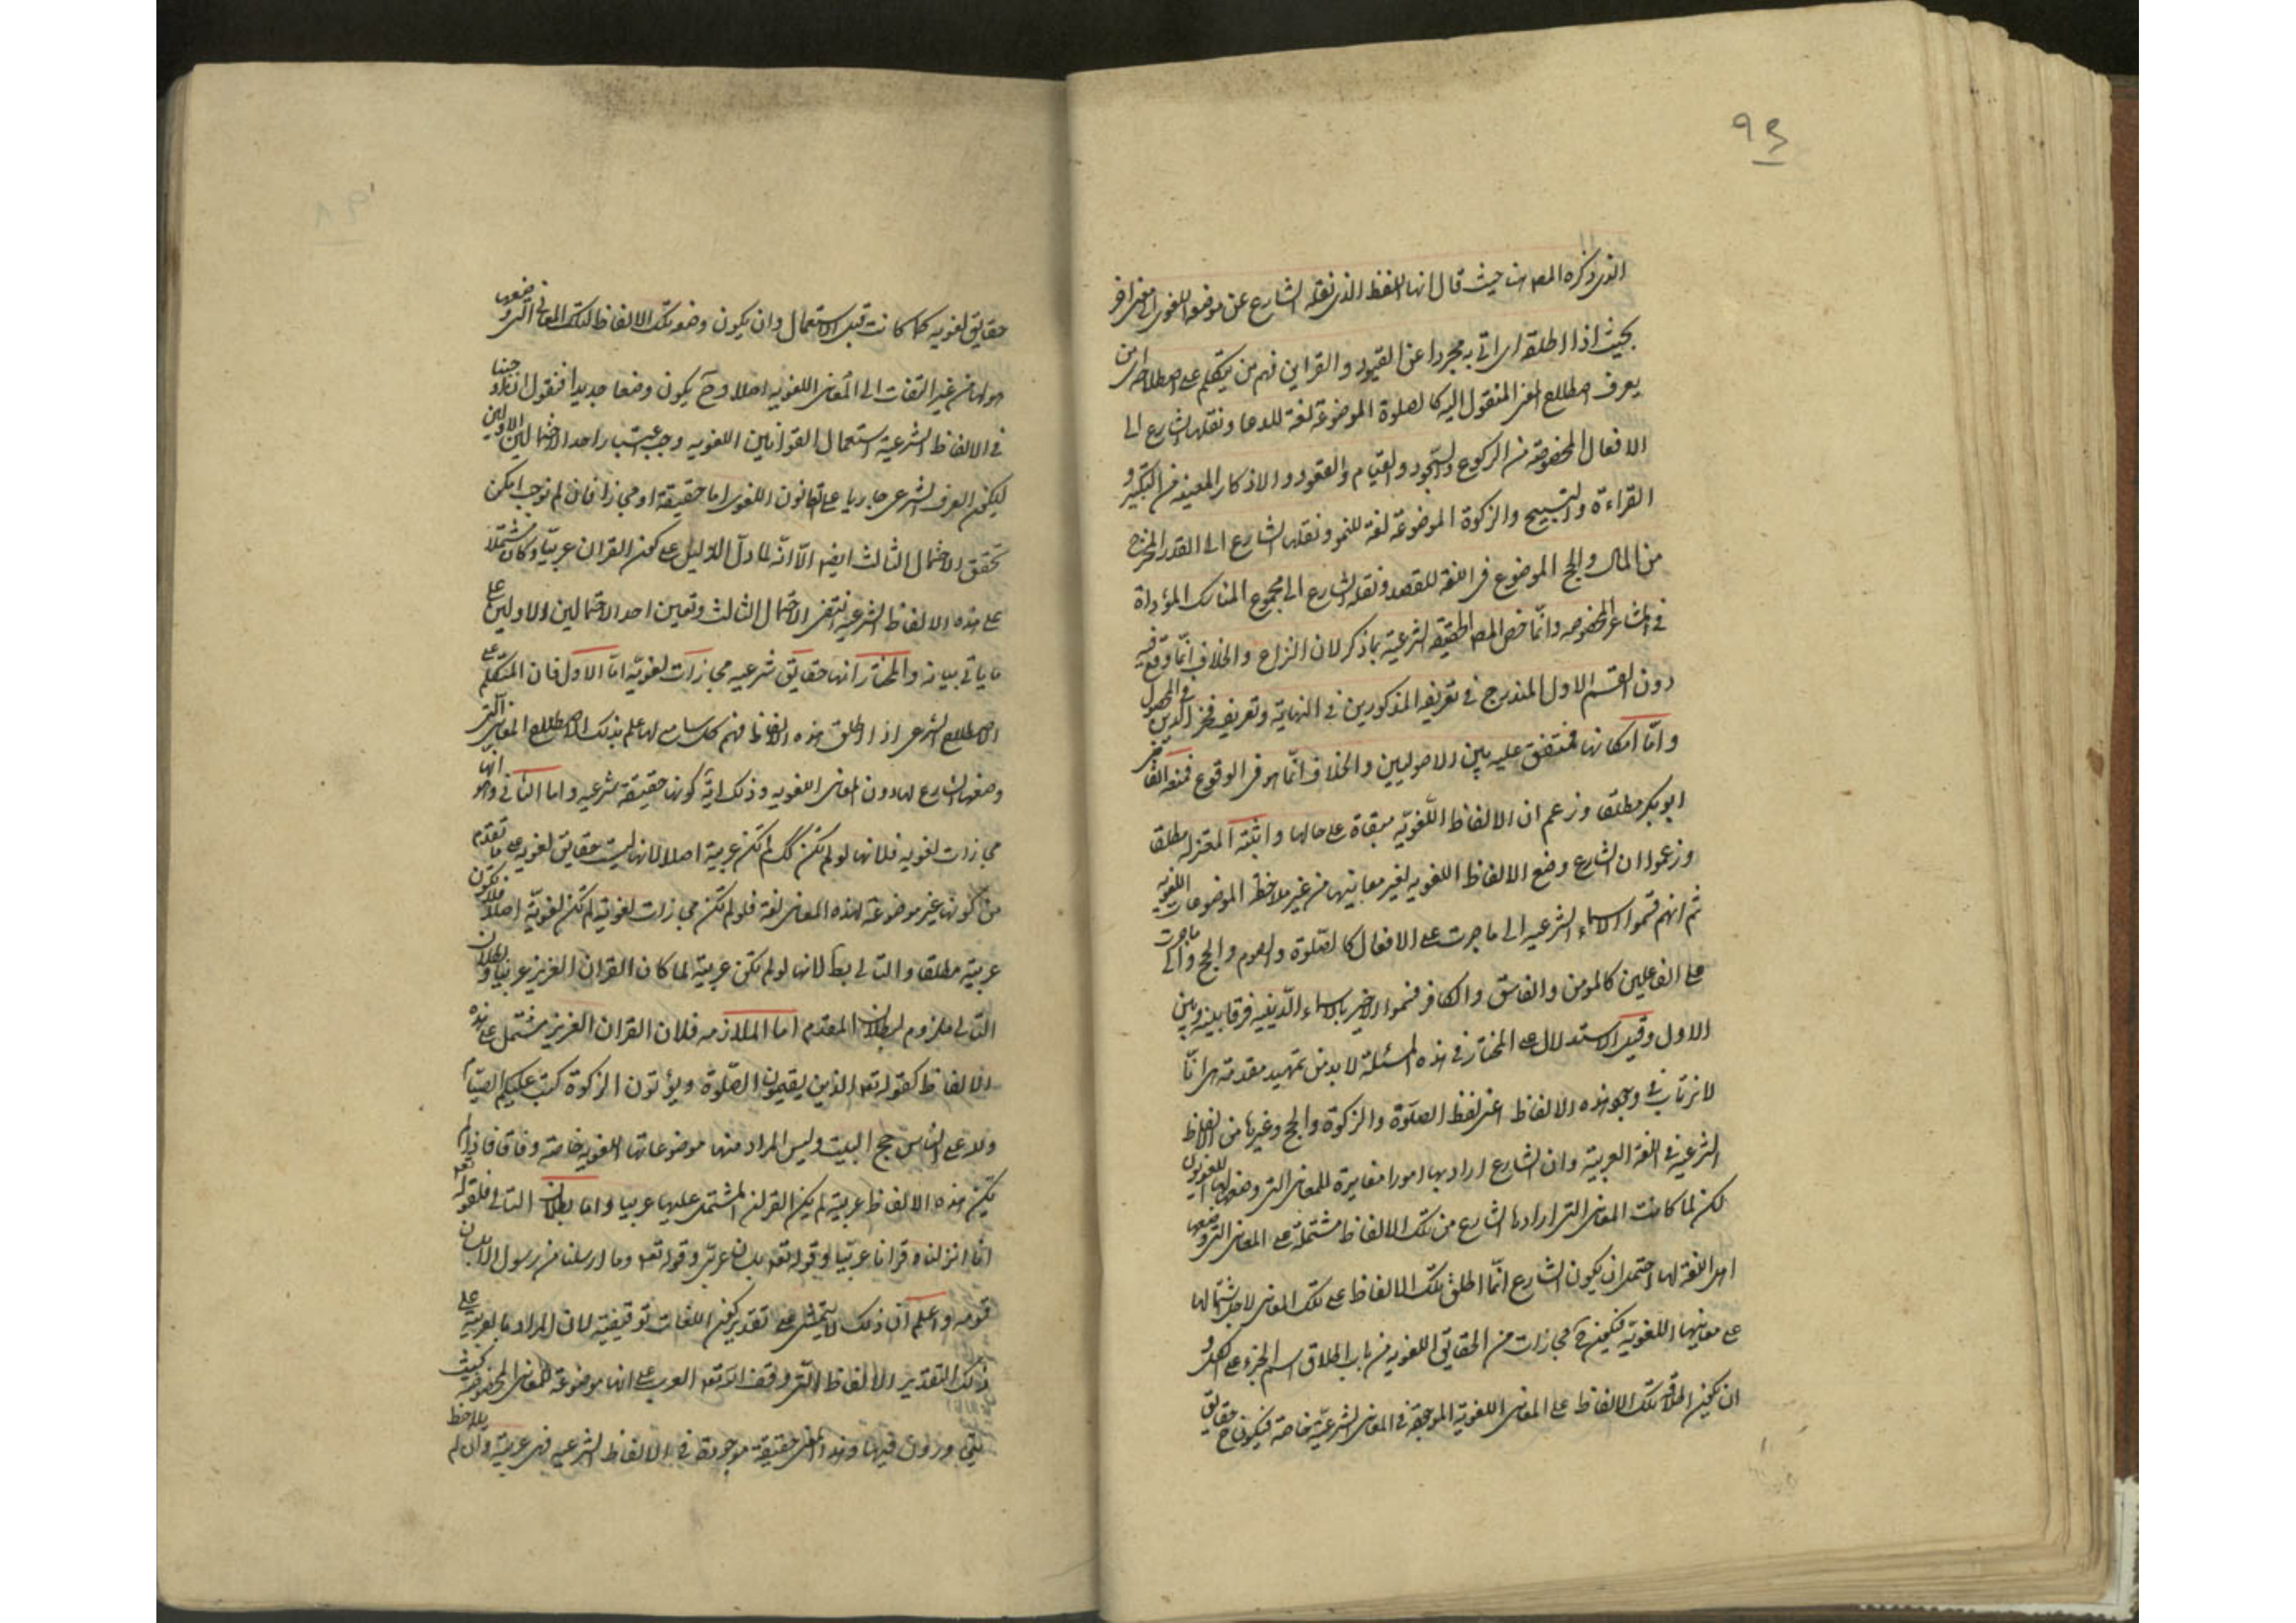 ٩٤
الذي ذكره المصنف حيث قال انها اللفظ الذي نقله الشارع عن موضعه اللغوي الى معنى اخر
بحيث اذا اطلقه اي اتى به مجردا عن القيود والقراين فهم من يتكلم على اصطلاحه اي من
يعرف اصطلاح المعنى المنقول اليه كالصلوة الموضوعة لغة للدعا ونقلها الشارع الى
الافعال المخصوصة من الركوع والسجود والقيام والقعود والاذكار المعينة من التكبير و
القراءة والتسبيح والزكوة الموضوعة لغة للنمو ونقلها الشارع الى القدر المخرج
من المال والحج الموضوع في اللغة للقصد ونقله الشارع الى مجموع المناسك المؤداة
في المشاعر المخصوصه وانما خص المص الحقيقة الشرعية بما ذكر لان النزاع والخلاف انما وقع فيه
دون القسم الاول المندرج في تعريفه المذكورين في النهاية وتعريف فخر الدين في المحصول
واما امكانها فمتفق عليه بين الاصوليين والخلاف انما هو في الوقوع فمنعه القاضي
ابو بكر مطلقا وزعم ان الالفاظ اللغوية مبقاة على حالها واثبته المعتزلة مطلقا
وزعموا ان الشارع وضع الالفاظ اللغوية لغير معانيها من غير ملاحظة الموضوعات اللغوية
ثم انهم قسموا الاسماء الشرعيه الى ما جرت على الافعال كالصلوة والصوم والحج والى ما جرت
على الفاعلين كالمومن والفاسق والكافر فسموا الاخير بالاسماء الدينيه فرقا بينه وبين
الاول وقبل الاستدلال على المختار في هذه المسئلة لا بد من تمهيد مقدمة هي انا
لا نرتاب في وجود هذه الالفاظ اعني لفظ الصلوة والزكوة والحج وغيرها من الالفاظ
الشرعية في اللغة العربية وان الشارع اراد بها امورا مغايرة للمعاني التي وضعها لها اللغويون
لكن لما كانت المعاني التي ارادها الشارع من تلك الالفاظ مشتملة على المعاني التي وضعها
اهل اللغة لها احتمل ان يكون الشارع انما اطلق تلك الالفاظ على تلك المعاني لاجل اشتمالها
على معانيها اللغوية فتكون ح مجازات من الحقايق اللغوية من باب اطلاق اسم الجزء على الكل و
ان يكون اطلاقه تلك الالفاظ على المعاني اللغوية الموجودة في المعاني الشرعية خاصة فيكون ح حقايق
حقايق لغويه كما كانت قبل الاستعمال وان يكون وضعه تلك الالفاظ لتلك المعاني التي وضعها
هو لها من غير التفات الى المعاني اللغويه اصلا وح يكون وضعا جديدا فنقول ان اوجبنا
في الالفاظ الشرعية استعمال القوانين اللغويه وجب اعتبار احد الاحتمالين الاولين
ليكون العرف الشرعي جاريا على القانون اللغوي اما حقيقة او مجازا فان لم نوجب امكن
تحقق الاحتمال الثالث ايضا الا انه لما دل الدليل على كون القران عربيا وكان مشتملا
على هذه الالفاظ الشرعيه انتفى الاحتمال الثالث وتعين احد الاحتمالين الاولين على
ما ياتي بيانه والمختار انها حقايق شرعيه مجازات لغوية اما الاول فان المتكلم على
الاصطلاح الشرعي اذا اطلق هذه الالفاظ فهم كل سامع لها علم بذلك الاصطلاح المعاني التي
وضعها الشارع لها دون المعاني اللغويه وذلك اية كونها حقيقة شرعيه واما الثاني وهو انها
مجازات لغويه فلانها لو لم تكن كك لم تكن عربية اصلا لانها ليست حقايق لغوية على ما تقدم
من كونها غير موضوعة لهذه المعاني لغة فلو لم تكن مجازات لغوية لم تكن لغوية اصلا فلا تكون
عربية مطلقا والتالي بط لانها لو لم تكن عربية لما كان القران العزيز عربيا وبطلان
التالي ملزوم لبطلان المقدم اما الملازمه فلان القران العزيز مشتمل على هذه
الالفاظ كقوله تعه الذين يقيمون الصلوة ويؤتون الزكوة كتب عليكم الصيام
ولله على الناس حج البيت وليس المراد منها موضوعاتها اللغوية خاصة وفاقا فاذا لم
تكن هذه الالفاظ عربية لم يكن القران المشتمل عليها عربيا واما بطلان التالي فلقوله تعه
انا انزلناه قرانا عربيا وقوله تعه بلسان عربي وقوله تعه وما ارسلنا من رسول الا بلسان
قومه واعلم ان ذلك لا يتمشى على تقدير كون اللغات توقيفية لان المراد بالعربية على
ذلك التقدير الالفاظ التي وقف الله تعه العرب على انها موضوعة للمعاني المخصوصة كيف
ورون فيها وهذا المعنى حقيقة موجودة في الالفاظ الشرعيه فهي عربية وان لم يلاحظ